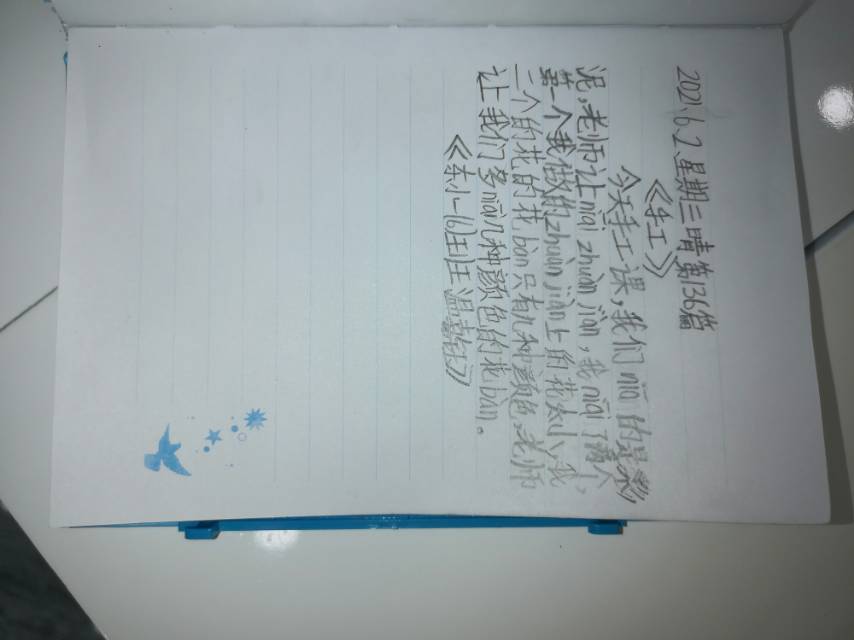 2021.6.2 星期三 晴 第136篇
《手工》
今天手工课，我们niē的是彩
泥，老师让niē zhuàn jiān，我niē了两个
第一个我做的zhuàn jiān上的花太小，我
二个的花的花bàn只有几种颜色，老师
让我们多niē几种颜色的花bàn。
《东小一(6)班温